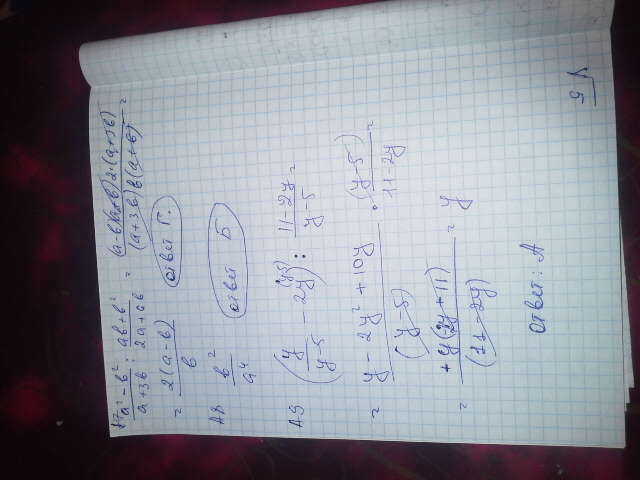 A7 (a² - b²)/(a + 3b) : (ab + b²)/(2a + 6b) = (a-b)(a+b) 2·(a+3b)/(a+3b) b(a+b) =
= 2(a-b)/b ответ Г.
A8 b²/a⁴ ответ Б
A9 (y/(y-5) - 2y^(y-5)) : (11-2y)/(y-5) =
= (y - 2y² + 10y)/(y-5) · (y-5)/(11-2y) =
= + y(-2y + 11)/(11-2y) = y
Ответ: A
√5